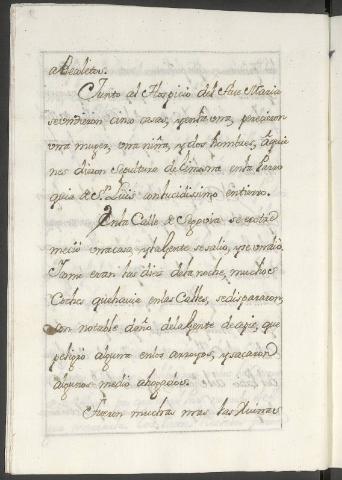 a Bealitos.
Junto al Hospicio del Ave Maria
se vndieron cinco casas, y en la vna, perecieron
vna muger, vna niña, y dos hombres, a quie
nes dieron sepultura de limosna en la Parro
quia de Sn. Luis con lucidisimo entierro.
En la Calle de Segovia se
mecio vna casa, y la gente se salio, y se vndio.
Y como eran las diez de la noche, muchos
Coches que havia en las Calles, se dispararon,
con notable daño de la gente de a pie, que
peligró alguna en los arroyos, y sacaron
algunos medio ahogados.
Fueron muchas mas las Ruinas